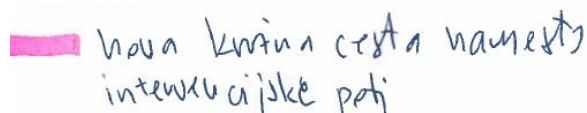 nova krožna cesta namesto
intervencijske poti